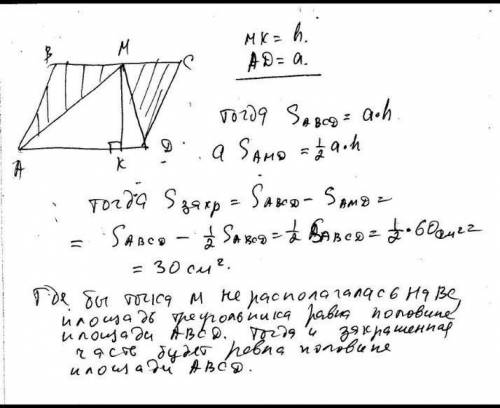 B M C
A K D
MK = h.
AD = a.
тогда S ABCD = a·h
а S AMD = ½ a·h
тогда S закр = S ABCD - S AMD =
= S ABCD - ½ S ABCD = ½ S ABCD = ½ · 60 см² =
= 30 см².
Где бы точка М не располагалась на ВС,
площадь треугольника равна половине
площади ABCD. Тогда и закрашенная
часть будет равна половине
площади ABCD.